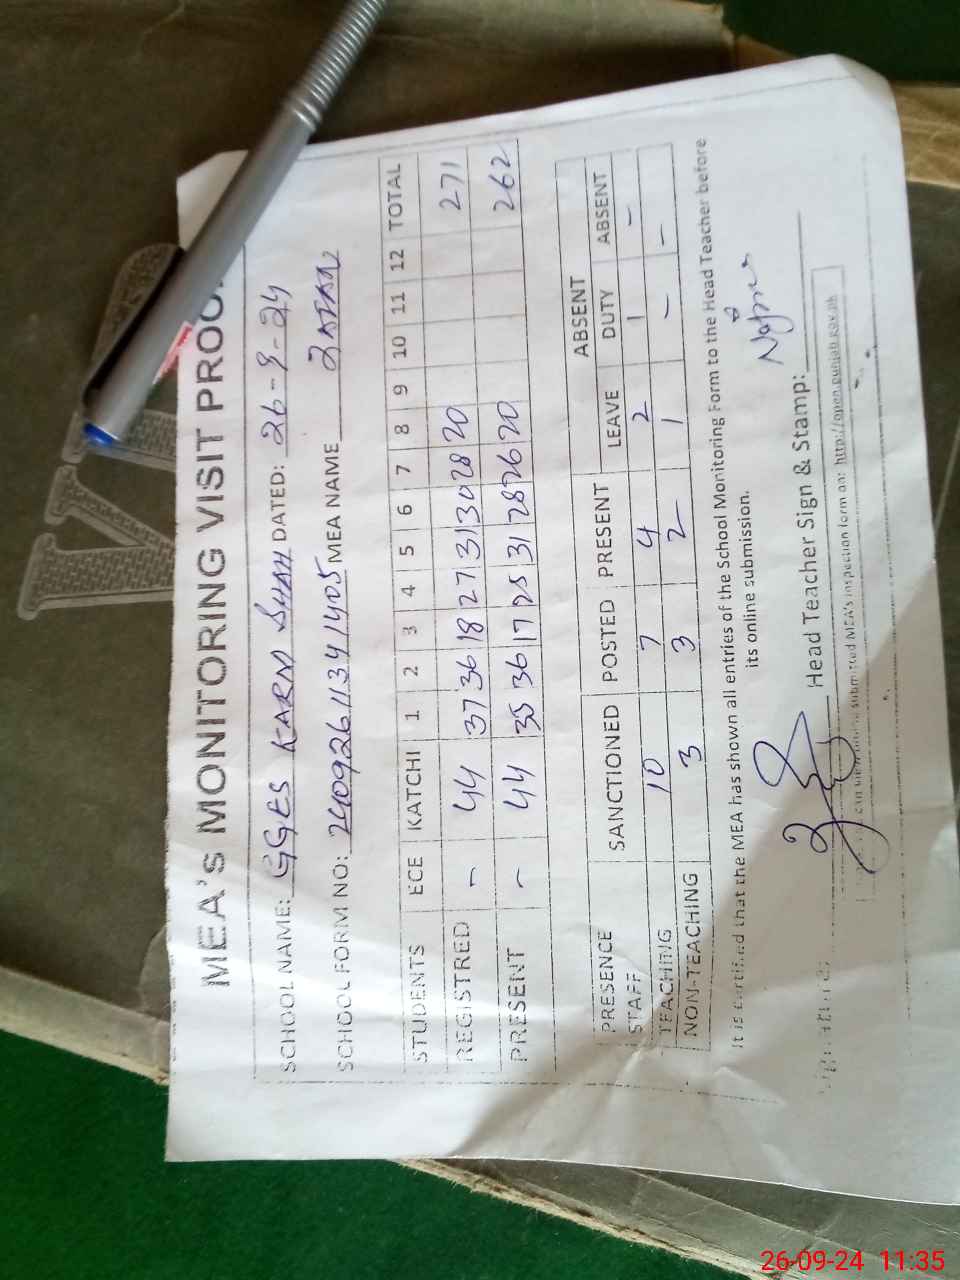 MEA'S MONITORING VISIT PROO
SCHOOL NAME: GGES KARM SHAH DATED: 26-9-24
SCHOOL FORM NO: 240926113141405 MEA NAME ZAFAR
STUDENTS ECE KATCHI 1 2 3 4 5 6 7 8 9 10 11 12 TOTAL
REGISTRED - 44 37 36 18 27 31 30 28 20 271
PRESENT - 44 35 36 17 25 31 28 26 20 262
PRESENCE SANCTIONED POSTED PRESENT ABSENT
STAFF LEAVE DUTY ABSENT
TEACHING 10 7 4 2 1 -
NON-TEACHING 3 3 2 1 - -
It is certified that the MEA has shown all entries of the School Monitoring Form to the Head Teacher before
its online submission.
Head Teacher Sign & Stamp:
can view submitted MEA's inspection form on: http://open.punjab.gov.pk
26-09-24 11:35